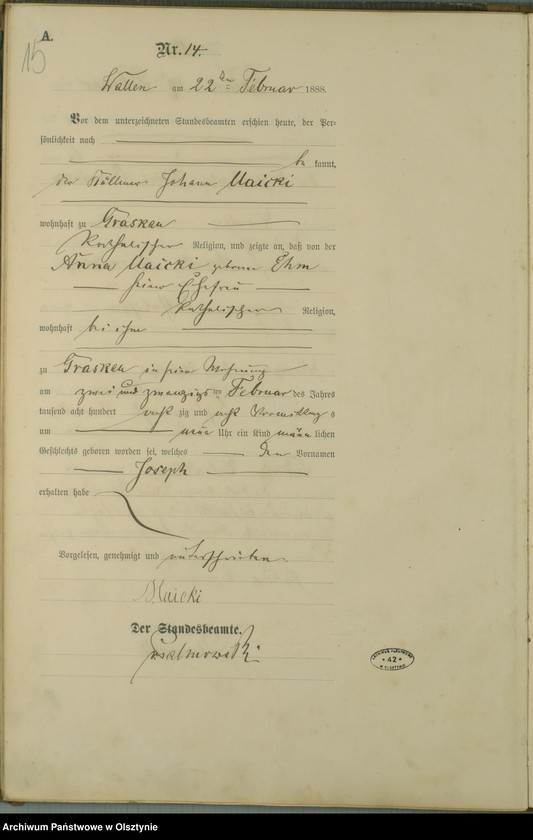 A.
15
Nr. 14.
Wallen am 22ten Februar 1888.
Vor dem unterzeichneten Standesbeamten erschien heute, der Per-
sönlichkeit nach
be kannt,
der Johann Maicki
wohnhaft zu Grasken
Katholischer Religion, und zeigte an, daß von der
Anna Maicki geborene Ehm
seiner Ehefrau
katholischer Religion,
wohnhaft bei ihm
zu Grasken in seiner Wohnung
am zwei und zwanzigsten Februar des Jahres
tausend acht hundert acht zig und acht Vormittags
um neun Uhr ein Kind männlichen
Geschlechts geboren worden sei, welches den Vornamen
Joseph
erhalten habe
Vorgelesen, genehmigt und unterschrieben.
Maicki
Der Standesbeamte.
42
Archiwum Państwowe w Olsztynie